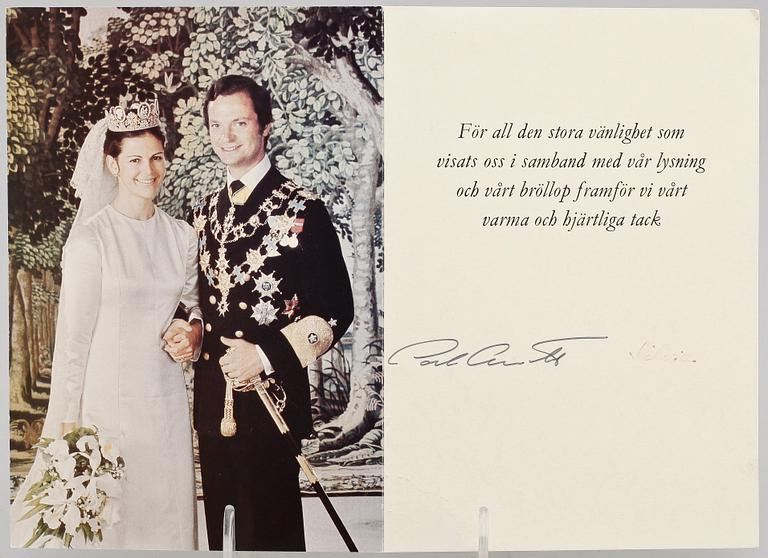 För all den stora vänlighet som
visats oss i samband med vår lysning
och vårt bröllop framför vi vårt
varma och hjärtliga tack
Carl Gustaf
Silvia